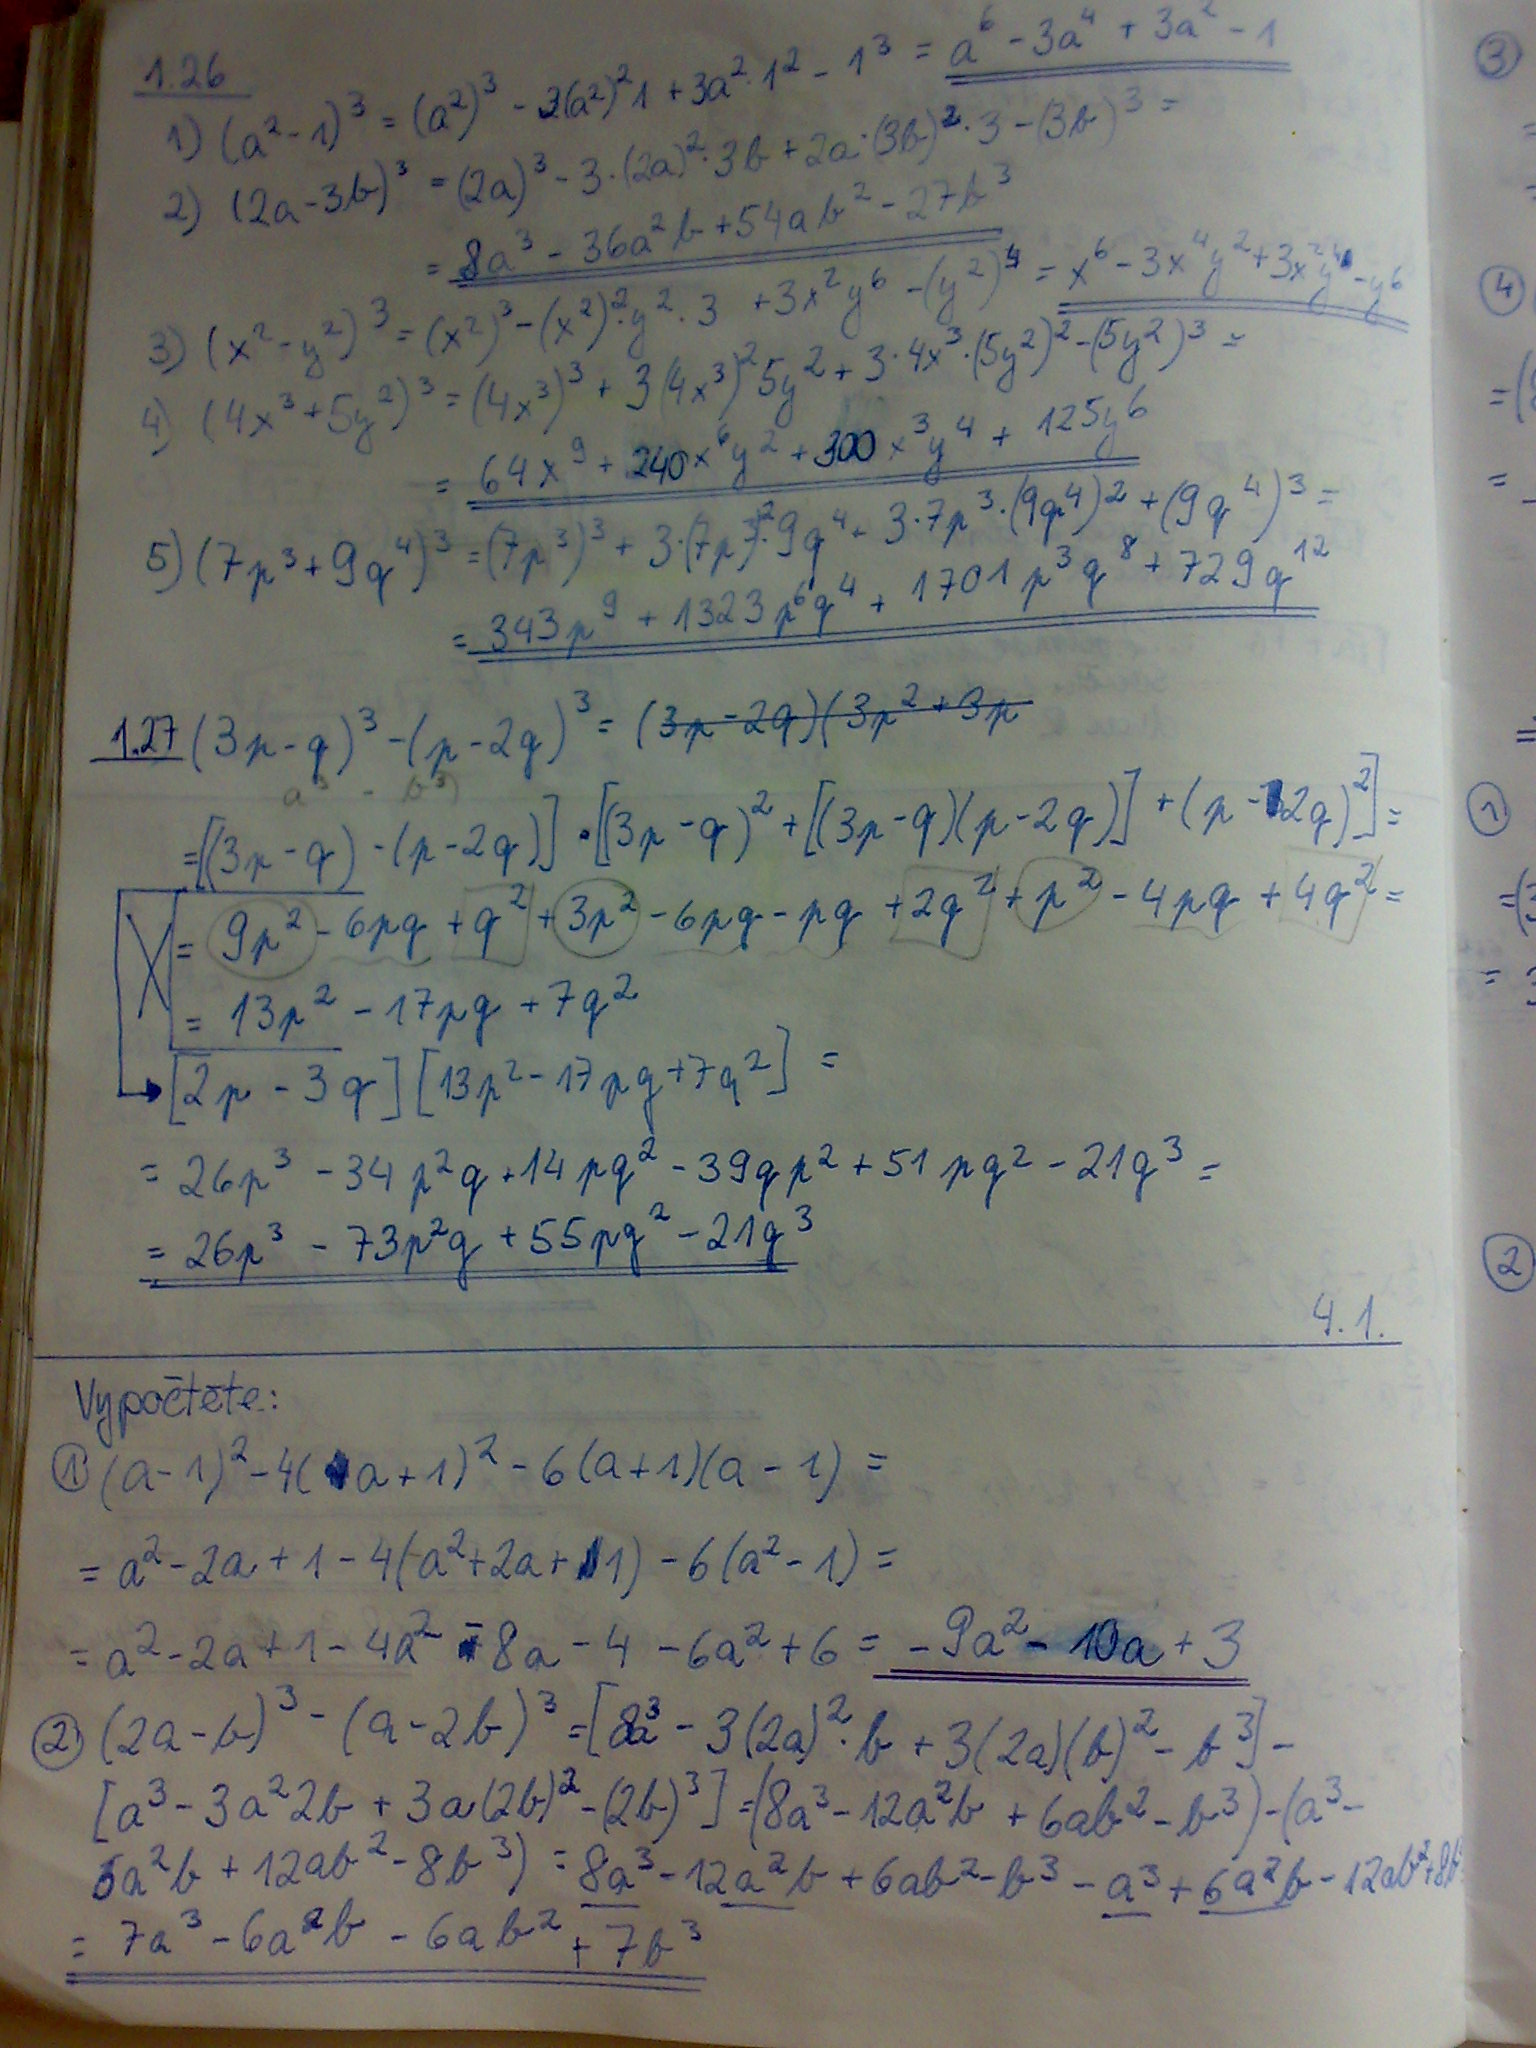 1.26
1) (a² - 1)³ = (a²)³ - 3(a²)²1 + 3a²·1² - 1³ = a⁶ - 3a⁴ + 3a² - 1
2) (2a - 3b)³ = (2a)³ - 3·(2a)²·3b + 2a·(3b)²·3 - (3b)³ =
= 8a³ - 36a²b + 54ab² - 27b³
3) (x² - y²)³ = (x²)³ - (x²)²·y²·3 + 3x²y⁶ - (y²)⁴ = x⁶ - 3x⁴y² + 3x²y⁴ - y⁶
4) (4x³ + 5y²)³ = (4x³)³ + 3(4x³)²5y² + 3·4x³·(5y²)² - (5y²)³ =
= 64x⁹ + 240x⁶y² + 300x³y⁴ + 125y⁶
5) (7p³ + 9q⁴)³ = (7p³)³ + 3·(7p³)²·9q⁴ + 3·7p³·(9q⁴)² + (9q⁴)³ =
= 343p⁹ + 1323p⁶q⁴ + 1701p³q⁸ + 729q¹²
1.27 (3p - q)³ - (p - 2q)³ = (3p - 2q)(3p² + 3p
a³ - b³
= [(3p - q) - (p - 2q)]·[(3p - q)² + [(3p - q)(p - 2q)] + (p - 2q)²] =
= 9p² - 6pq + q² + 3p² - 6pq - pq + 2q² + p² - 4pq + 4q² =
= 13p² - 17pq + 7q²
[2p - 3q][13p² - 17pq + 7q²] =
= 26p³ - 34p²q + 14pq² - 39qp² + 51pq² - 21q³ =
= 26p³ - 73p²q + 55pq² - 21q³
4.1.
Vypočtěte:
① (a - 1)² - 4(a + 1)² - 6(a + 1)(a - 1) =
= a² - 2a + 1 - 4(a² + 2a + 1) - 6(a² - 1) =
= a² - 2a + 1 - 4a² - 8a - 4 - 6a² + 6 = -9a² - 10a + 3
② (2a - b)³ - (a - 2b)³ = [8a³ - 3(2a)²·b + 3(2a)(b)² - b³] -
[a³ - 3a²2b + 3a(2b)² - (2b)³] = (8a³ - 12a²b + 6ab² - b³) - (a³ -
6a²b + 12ab² - 8b³) = 8a³ - 12a²b + 6ab² - b³ - a³ + 6a²b - 12ab² + 8b³
= 7a³ - 6a²b - 6ab² + 7b³
③
④
①
②